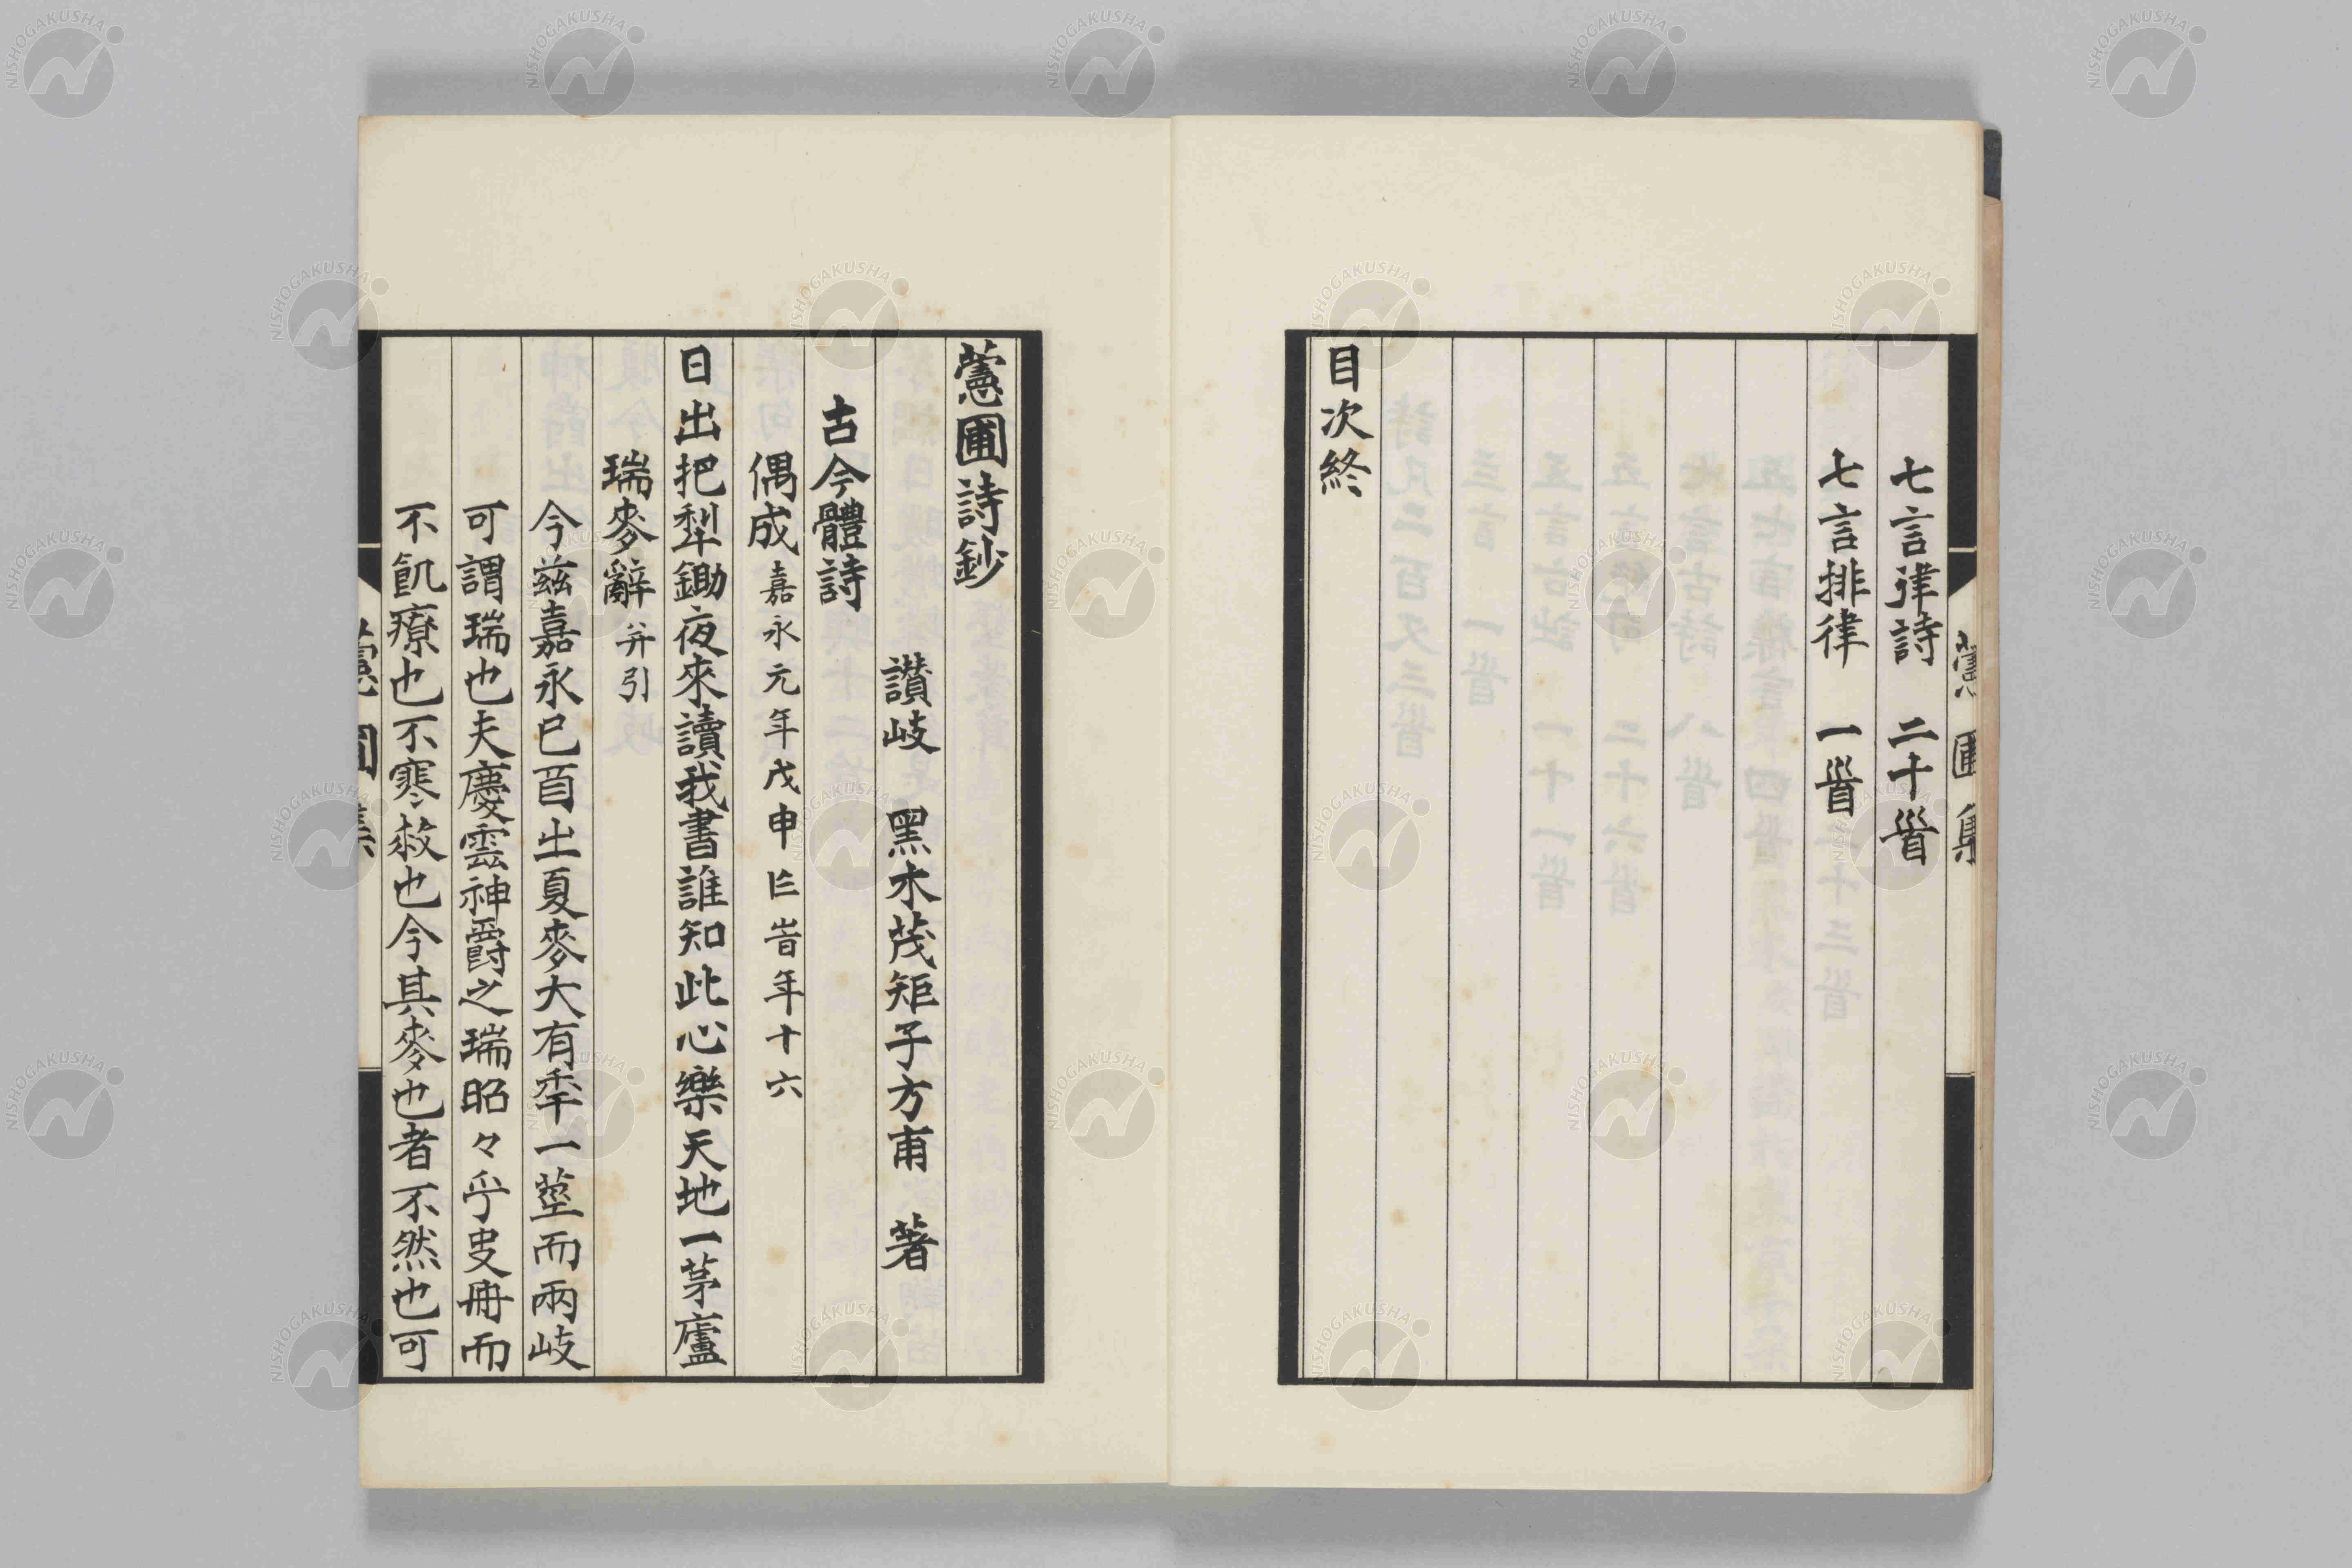 七言律詩　二十首
七言排律　一首
目次終
藼圃詩鈔
讃岐　黑木茂矩子方甫　著
古今體詩
偶成 嘉永元年戊申 旹年十六
日出把犁鋤夜來讀我書誰知此心樂天地一茅廬
瑞麥辭 并引
今茲嘉永巳酉出夏麥大有秊一莖而兩岐
可謂瑞也夫慶雲神爵之瑞昭々乎史冊而
不飢療也不寒救也今其麥也者不然也可
藼圃集
NISHOGAKUSHA